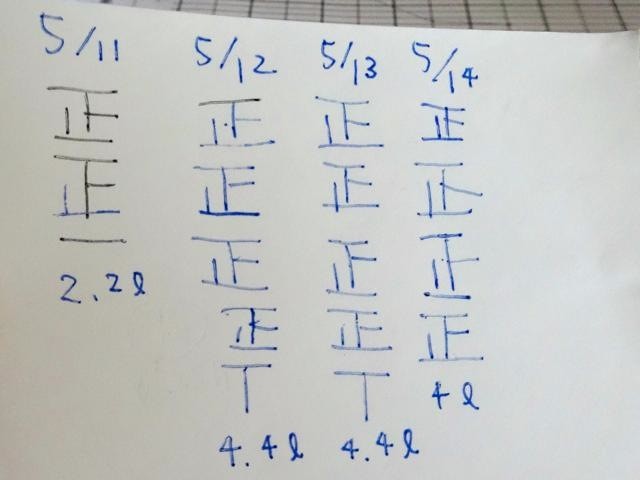 5/11
正
正
一
2.2ℓ
5/12
正
正
正
正
丅
4.4ℓ
5/13
正
正
正
正
丅
4.4ℓ
5/14
正
正
正
正
4ℓ